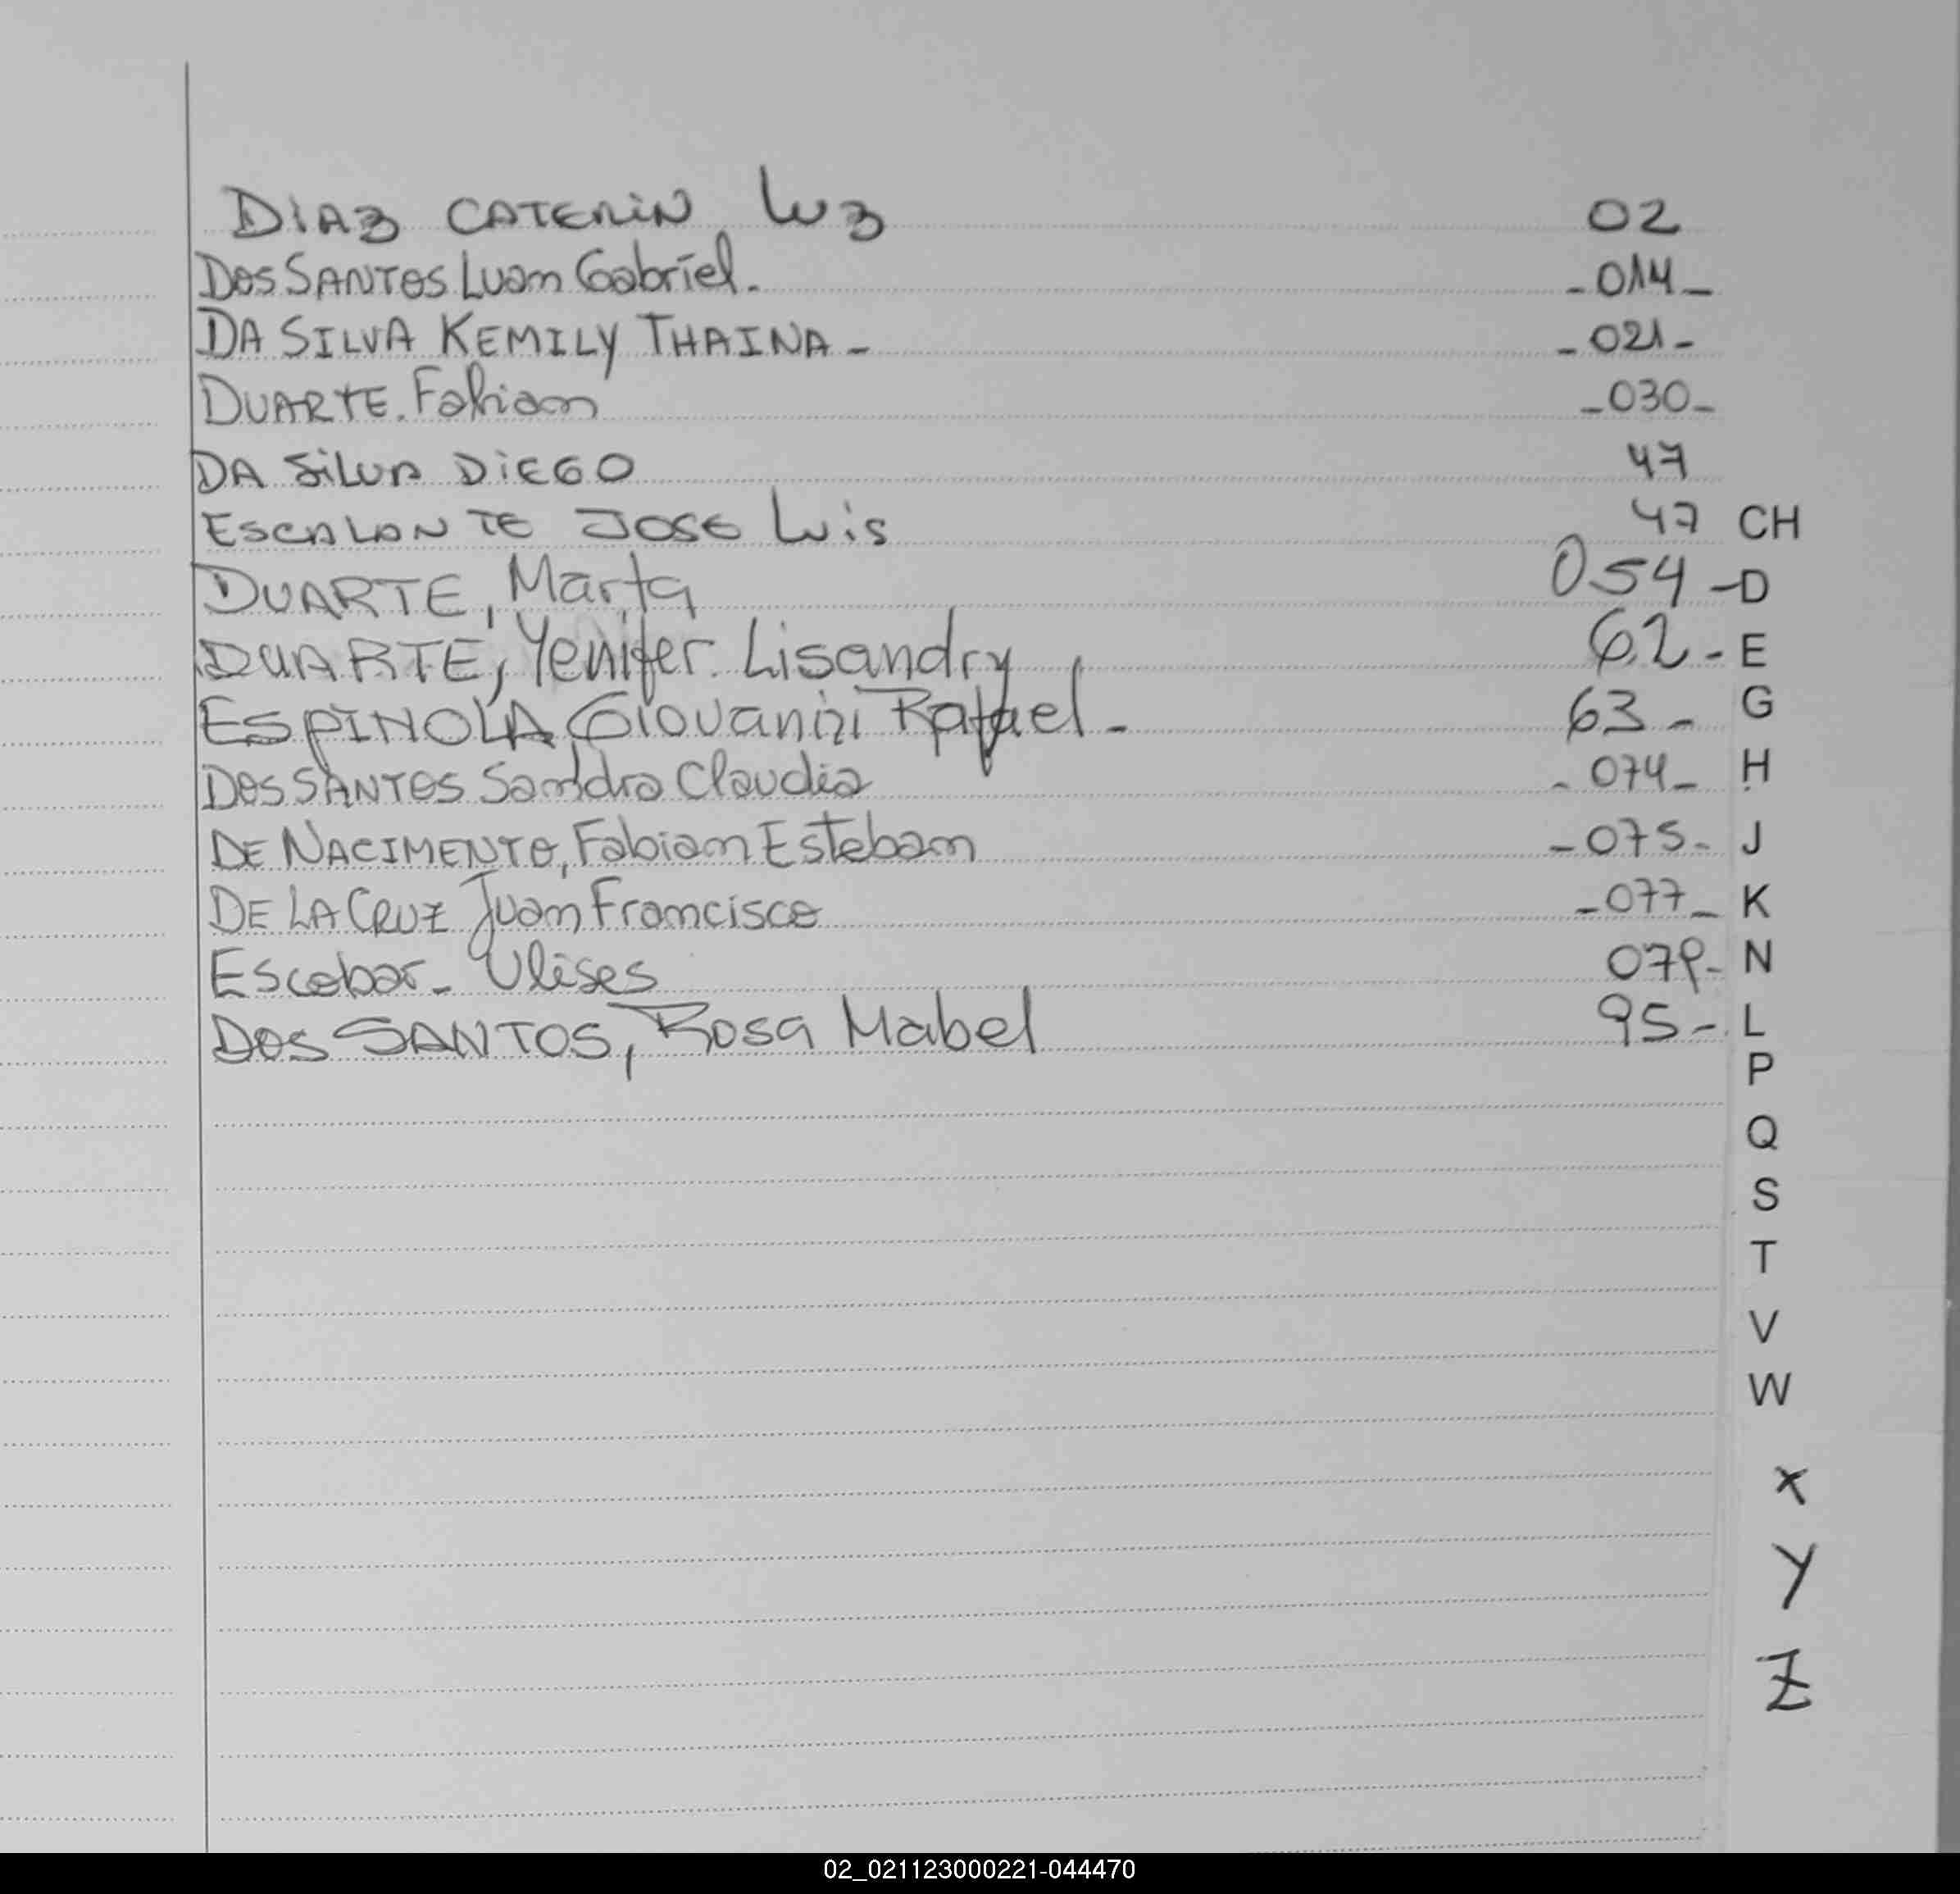 DIAZ CATERIN Luz 02
DOS SANTOS Luan Gabriel. -014-
DA SILVA KEMILY THAINA- -021-
DUARTE. Fabian -030-
DA SILVA DIEGO 47
ESCALANTE JOSE Luis 47 CH
DUARTE, Marta 054 -D
DUARTE, Yenifer Lisandry 62- E
ESPINOLA Giovanni Rafael- 63- G
DOS SANTOS Sandra Claudia -074- H
DE NACIMENTO, Fabian Esteban -075- J
DE LA CRUZ Juan Francisco -077- K
Escobar- Ulises 079- N
DOS SANTOS, Rosa Mabel 95- L
P
Q
S
T
V
W
X
Y
Z
02_021123000221-044470